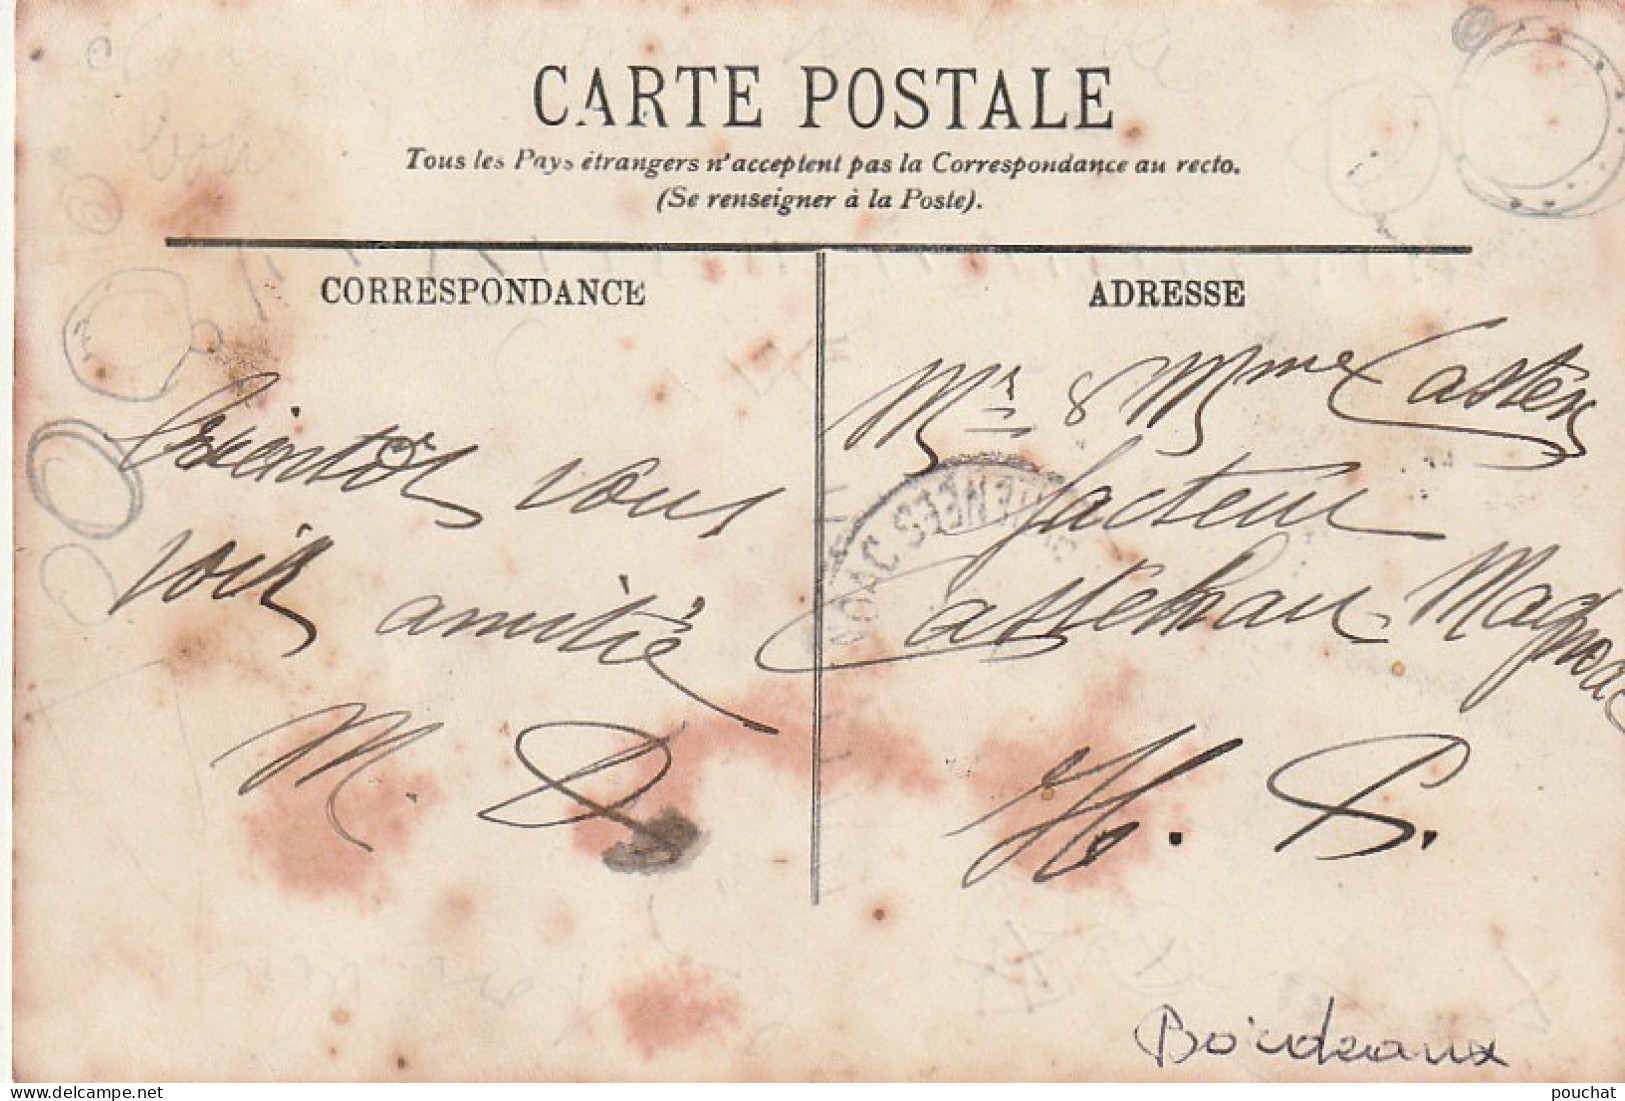 CARTE POSTALE
Tous les Pays étrangers n'acceptent pas la Correspondance au recto.
(Se renseigner à la Poste).
CORRESPONDANCE
ADRESSE
bientôt vous
voir amitié
M. D
Mr & Mme Castex
facteur
Castelnau-Magnoac
H. P.
Bordeaux
pouchat